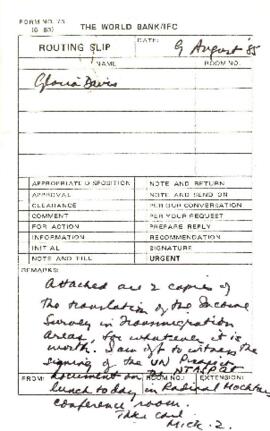 FORM NO. 75
(6-83)
THE WORLD BANK/IFC
ROUTING SLIP
DATE:
9 August '85
NAME
ROOM NO.
Gloria Davis
APPROPRIATE DISPOSITION NOTE AND RETURN
APPROVAL NOTE AND SEND ON
CLEARANCE PER OUR CONVERSATION
COMMENT PER YOUR REQUEST
FOR ACTION PREPARE REPLY
INFORMATION RECOMMENDATION
INITIAL SIGNATURE
NOTE AND FILE URGENT
REMARKS:
Attached are 2 copies of
the translation of the Income
Survey in Transmigration
Areas for whatever it is
worth. I am off to witness the
signing of the UN
document on
FROM: ROOM NO.: EXTENSION:
lunch today in Radinal
conference room.
Take care
Mick. Z.